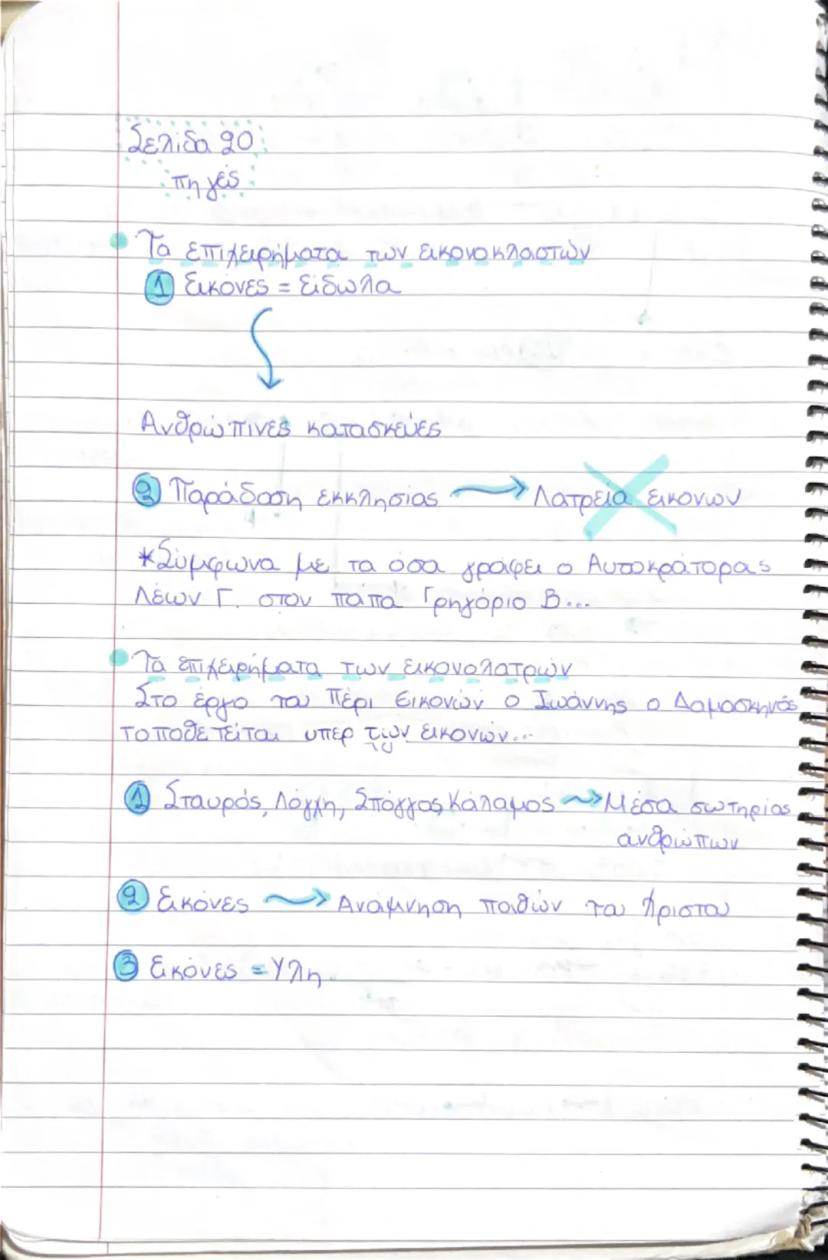 Σελίδα 20
πηγές
Τα επιχειρήματα των εικονοκλαστών
1 Εικόνες = Είδωλα
Ανθρώπινες κατασκευές
2 Παράδοση εκκλησίας → Λατρεία εικόνων
*Σύμφωνα με τα όσα γράφει ο Αυτοκράτορας
Λέων Γ. στον παπα Γρηγόριο Β...
Τα επιχειρήματα των εικονολατρών
Στο έργο του Πέρι Εικονών ο Ιωάννης ο Δαμοσκηνός
τοποθετείται υπερ των εικονών...
1 Σταυρός, Λόγχη, Σπόγγος, Κάλαμος → Μέσα σωτηρίας
ανθρώπων
2 Εικόνες → Ανάμνηση παθών του Χριστου
3 Εικόνες = Υλη